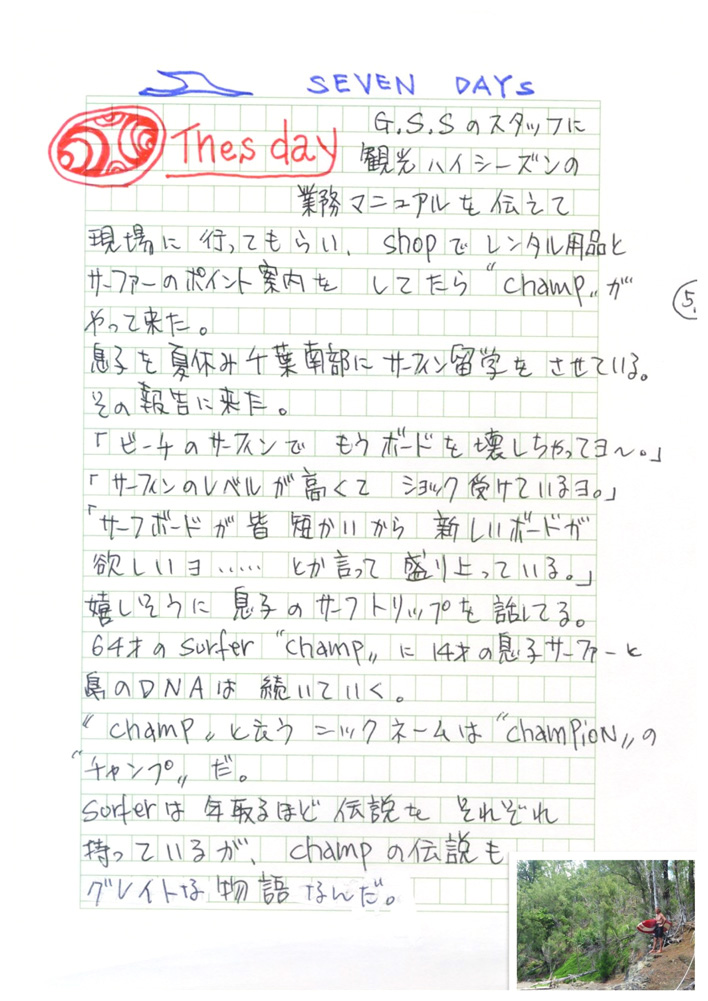 SEVEN DAYs
Thesday
G.S.Sのスタッフに
観光ハイシーズンの
業務マニュアルを伝えて
現場に行ってもらい、shopでレンタル用品と
サーファーのポイント案内をしてたら“champ〃が
5.
やって来た。
息子を夏休み千葉南部にサーフィン留学をさせている。
その報告に来た。
「ビーチのサーフィンでもうボードを壊しちゃってヨ～。」
「サーフィンのレベルが高くてショック受けているヨ。」
「サーフボードが皆短かいから新しいボードが
欲しいヨ……とか言って盛り上っている。」
嬉しそうに息子のサーフトリップを話してる。
64才のsurfer“champ〃に14才の息子サーファーと
島のDNAは続いていく。
“champ〃と云うニックネームは“champioN〃の
“チャンプ〃だ。
surferは年取るほど伝説をそれぞれ
持っているが、champの伝説も
グレイトな物語なんだ。